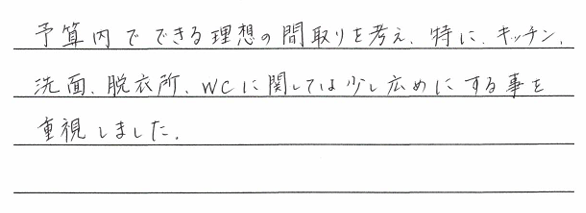 予算内でできる理想の間取りを考え、特に、キッチン、
洗面、脱衣所、WCに関しては少し広めにする事を
重視しました。